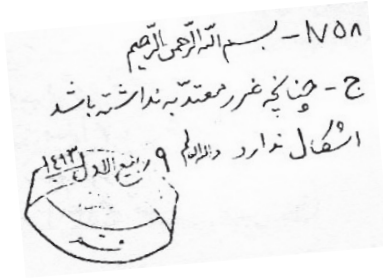 ۱۷۵۸ - بسم الله الرحمن الرحیم
ج - چنانچه غرر معتدّ به نداشته باشد
اشکال ندارد والله العالم ۹ ربیع الاول ۱٤۱۳